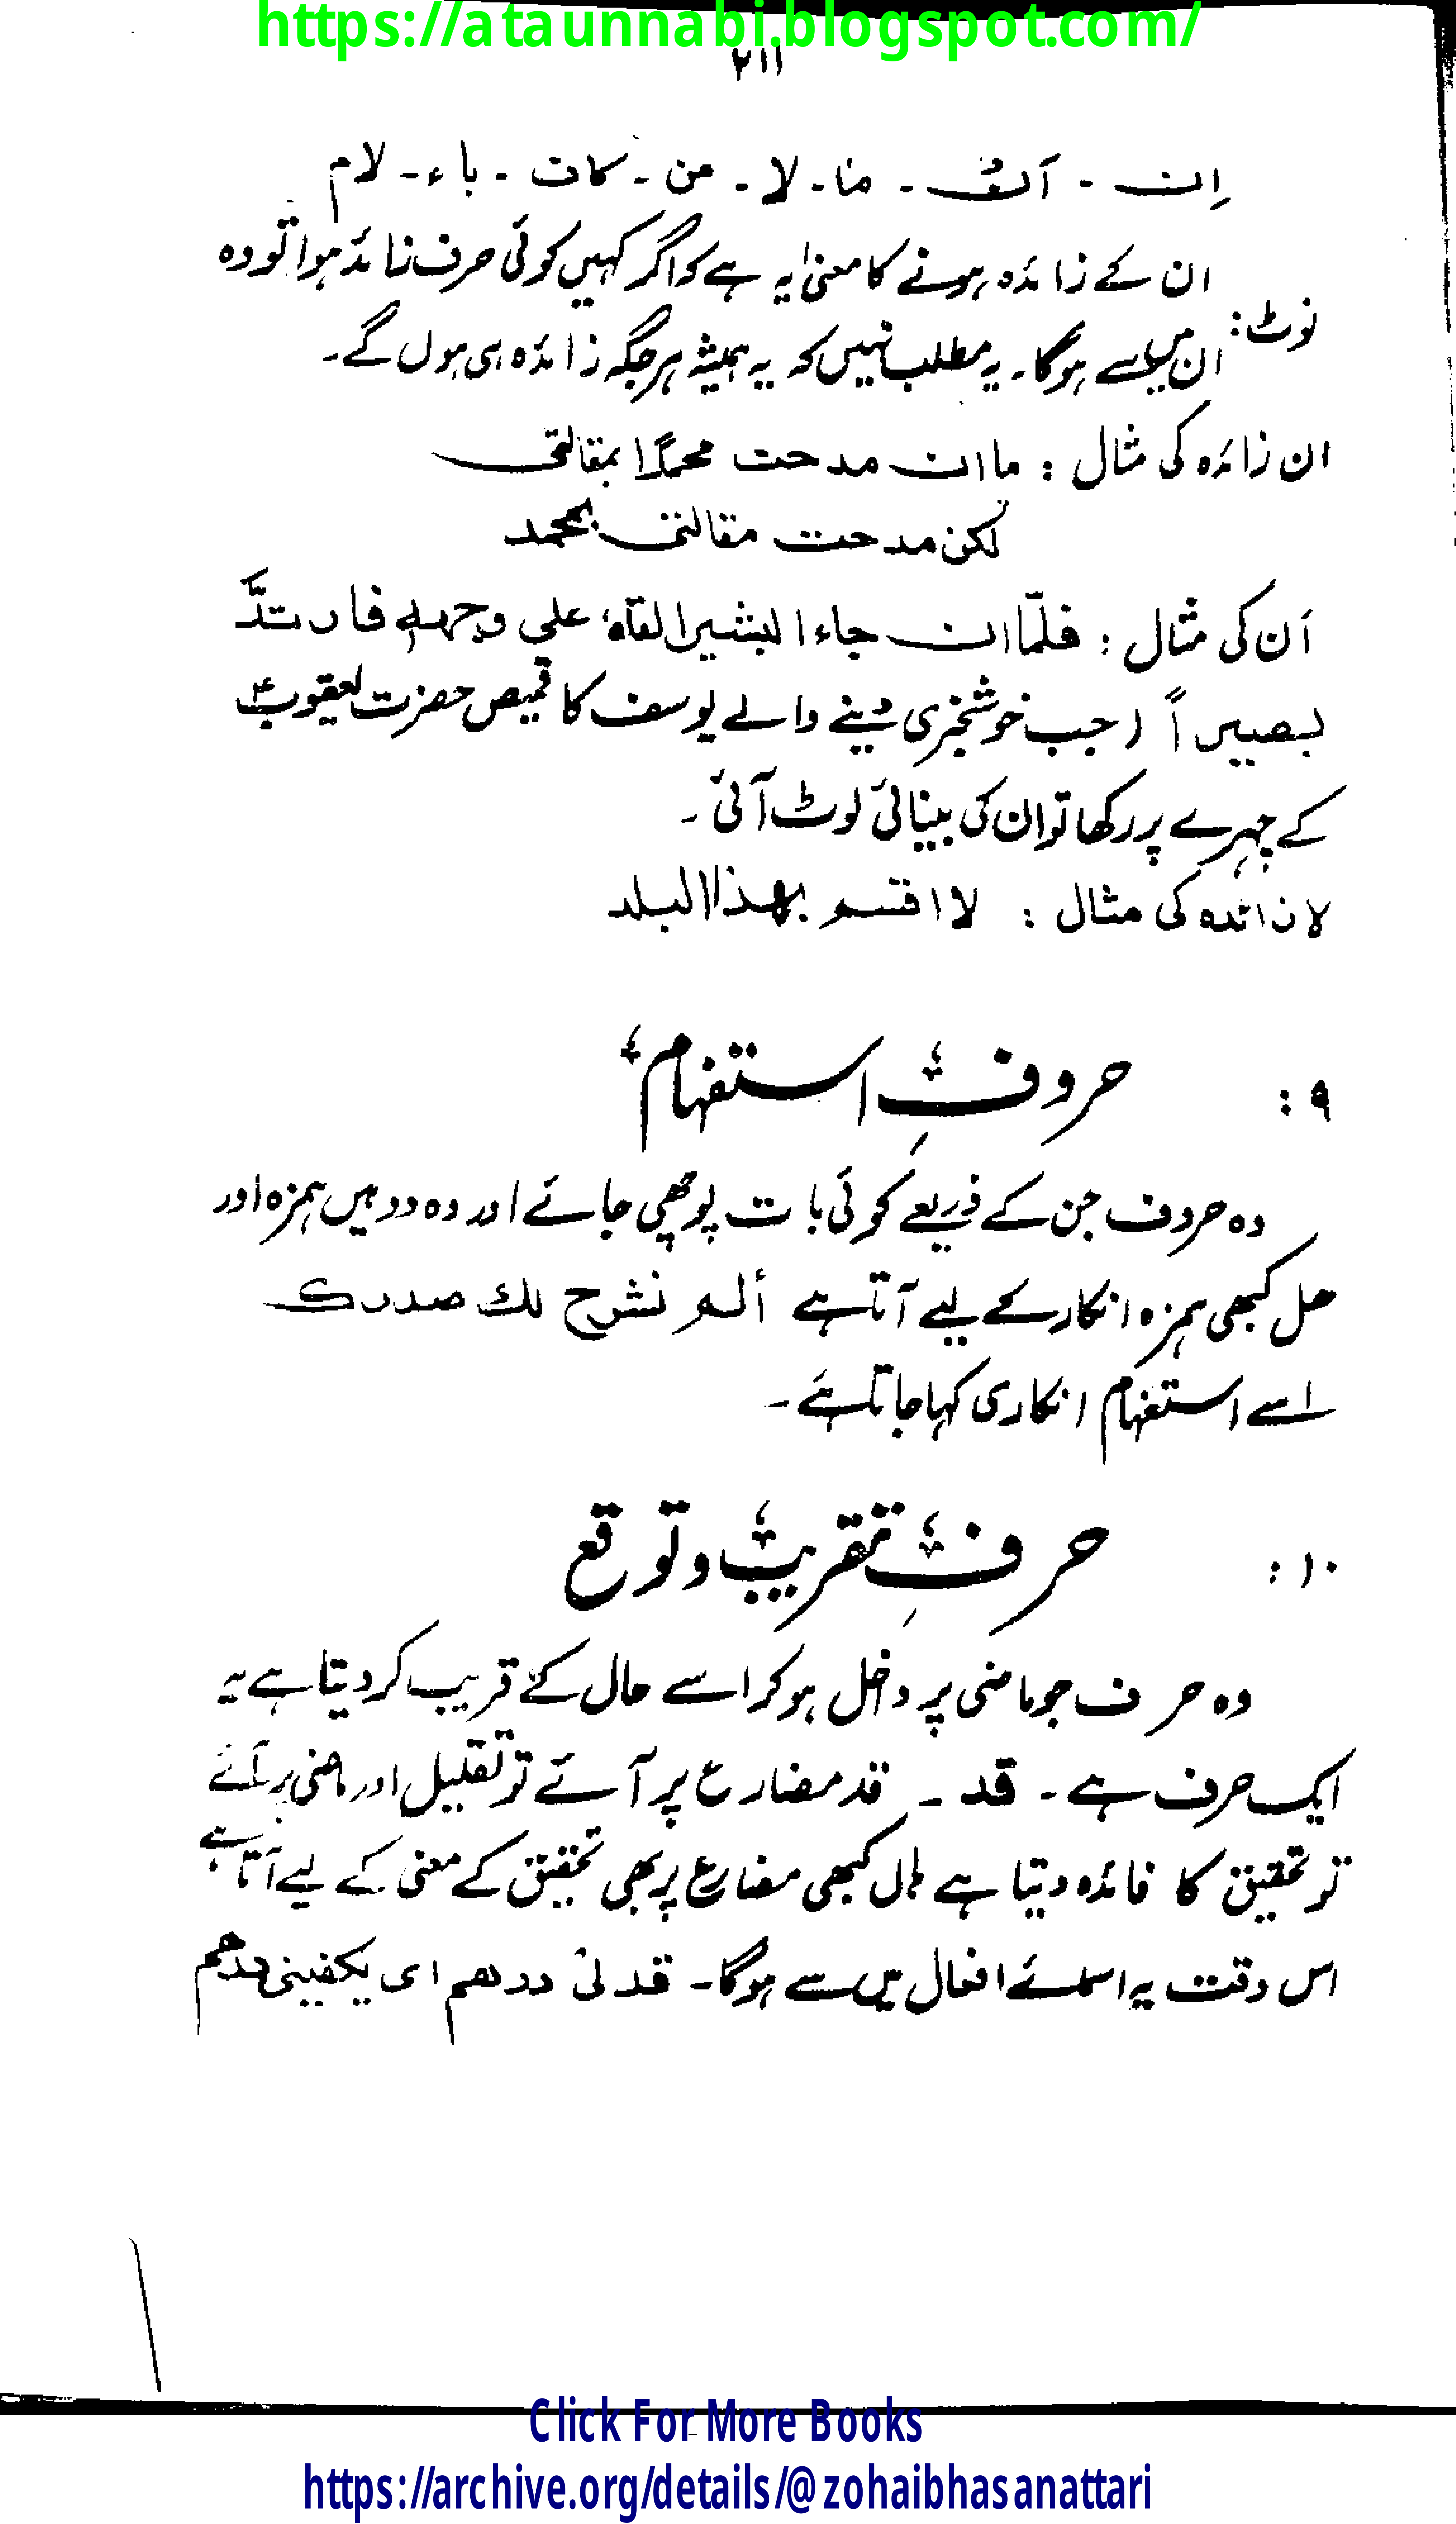 https://ataunnabi.blogspot.com/
۲۱۱
اِن - اَن - ما - لا - من - کاف - باء - لام
ان کے زائدہ ہونے کا معنیٰ یہ ہے کہ اگر کہیں کوئی حرف زائد ہوا تو وہ
نوٹ:
ان میں سے ہوگا۔ یہ مطلب نہیں کہ یہ ہمیشہ ہر جگہ زائدہ ہی ہوں گے۔
ان زائدہ کی مثال : ما ان مدحت محمدًا بمقالتی
لکن مدحت مقالتی بمحمد
اَن کی مثال : فلمّا ان جاء البشیر القاہ علی وجھہٖ فارتدَّ
بصیراً (جب خوشخبری دینے والے یوسف کا قمیص حضرت یعقوبؑ
کے چہرے پر رکھا تو ان کی بینائی لوٹ آئی۔
لا زائدہ کی مثال : لا اقسم بھذا البلد
۹ : حروفِ استفہام
وہ حروف جن کے ذریعے کوئی بات پوچھی جائے اور وہ دو ہیں ہمزہ اور
ھل کبھی ہمزہ انکار کے لیے آتا ہے ألم نشرح لك صدرك
اسے استفہام انکاری کہا جاتا ہے۔
۱۰ : حرفِ تقریب و توقع
وہ حرف جو ماضی پر داخل ہو کر اسے حال کے قریب کر دیتا ہے یہ
ایک حرف ہے۔ قد ـ قد مضارع پر آئے تو تقلیل اور ماضی پر آئے
تو تحقیق کا فائدہ دیتا ہے ہاں کبھی مضارع پر بھی تحقیق کے معنی کے لیے آتا ہے
اس وقت یہ اسمائے افعال میں سے ہوگا۔ قد نی درھم ای یکفینی درھم
Click For More Books
https://archive.org/details/@zohaibhasanattari